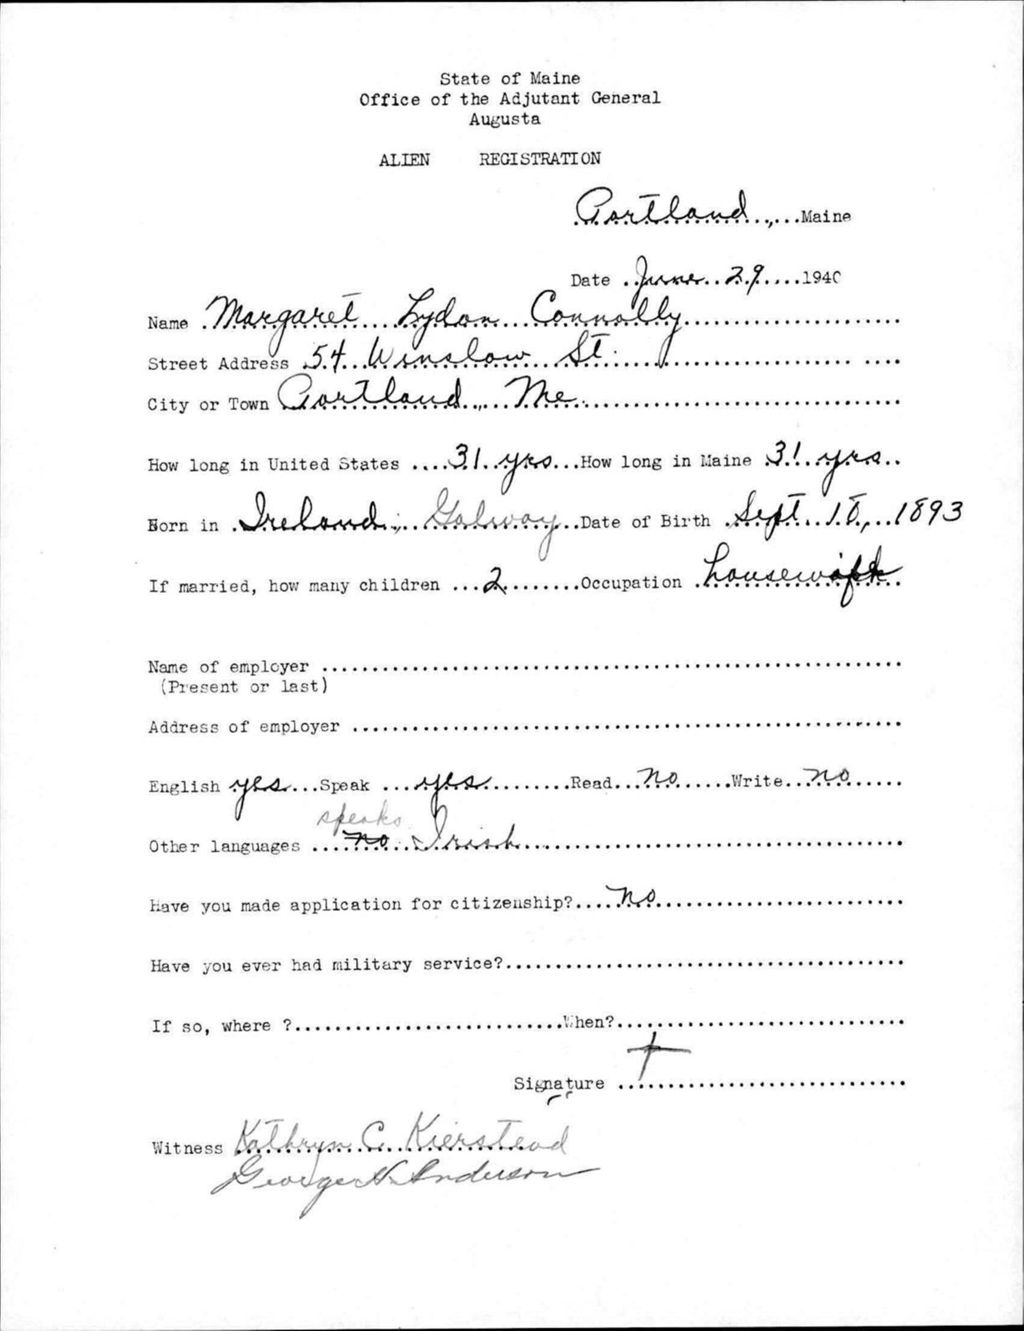 State of Maine
Office of the Adjutant General
Augusta
ALIEN REGISTRATION
Portland, Maine
Date June 29 1940
Name Margaret Lydon Connolly
Street Address 54 Winslow St.
City or Town Portland, Me.
How long in United States 31 yrs How long in Maine 31 yrs
Born in Ireland, Galway Date of Birth Sept. 18, 1893
If married, how many children 2 Occupation housewife
Name of employer
(Present or last)
Address of employer
English yes Speak yes Read no Write no
speaks
Other languages no Irish
Have you made application for citizenship? no
Have you ever had military service?
If so, where ? When?
Signature
Witness Kathryn C. Kierstead
George H. Anderson